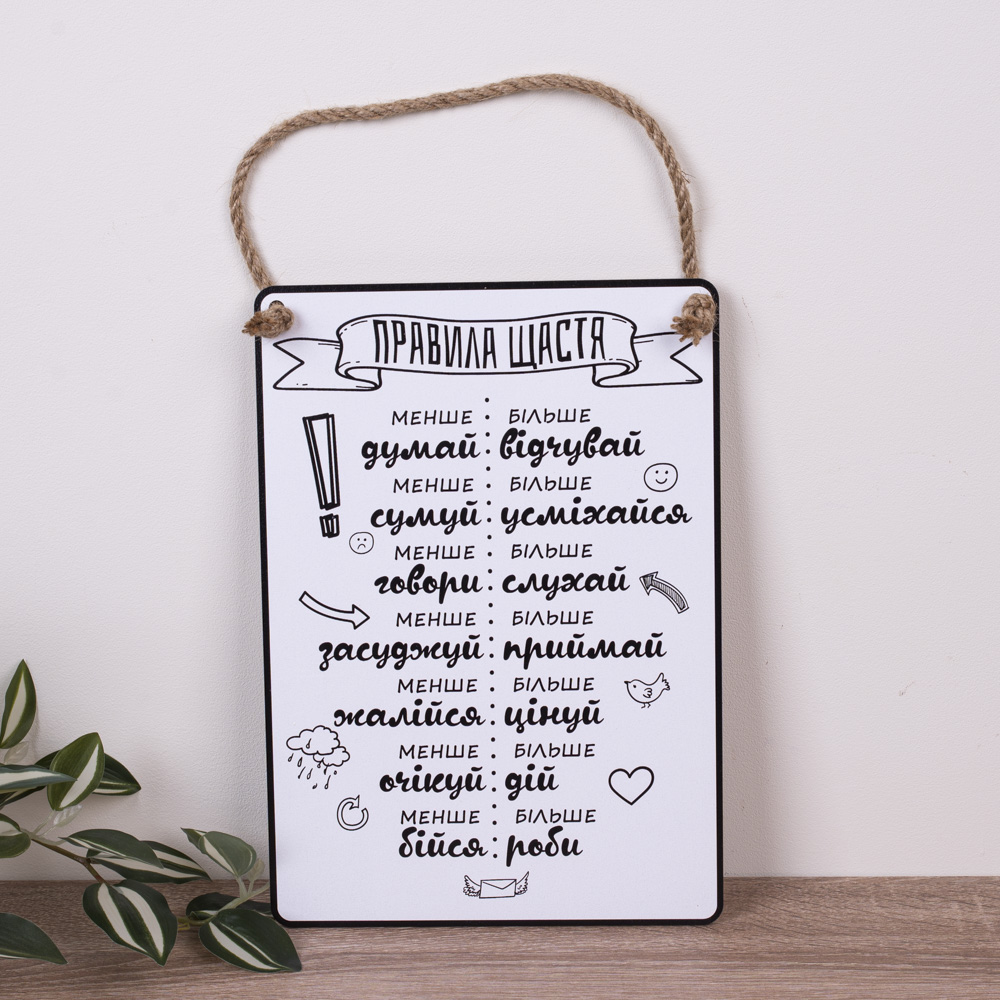 ПРАВИЛА ЩАСТЯ
МЕНШЕ БІЛЬШЕ
думай відчувай
МЕНШЕ БІЛЬШЕ
сумуй усміхайся
МЕНШЕ БІЛЬШЕ
говори слухай
МЕНШЕ БІЛЬШЕ
засуджуй приймай
МЕНШЕ БІЛЬШЕ
жалійся цінуй
МЕНШЕ БІЛЬШЕ
очікуй дій
МЕНШЕ БІЛЬШЕ
бійся роби